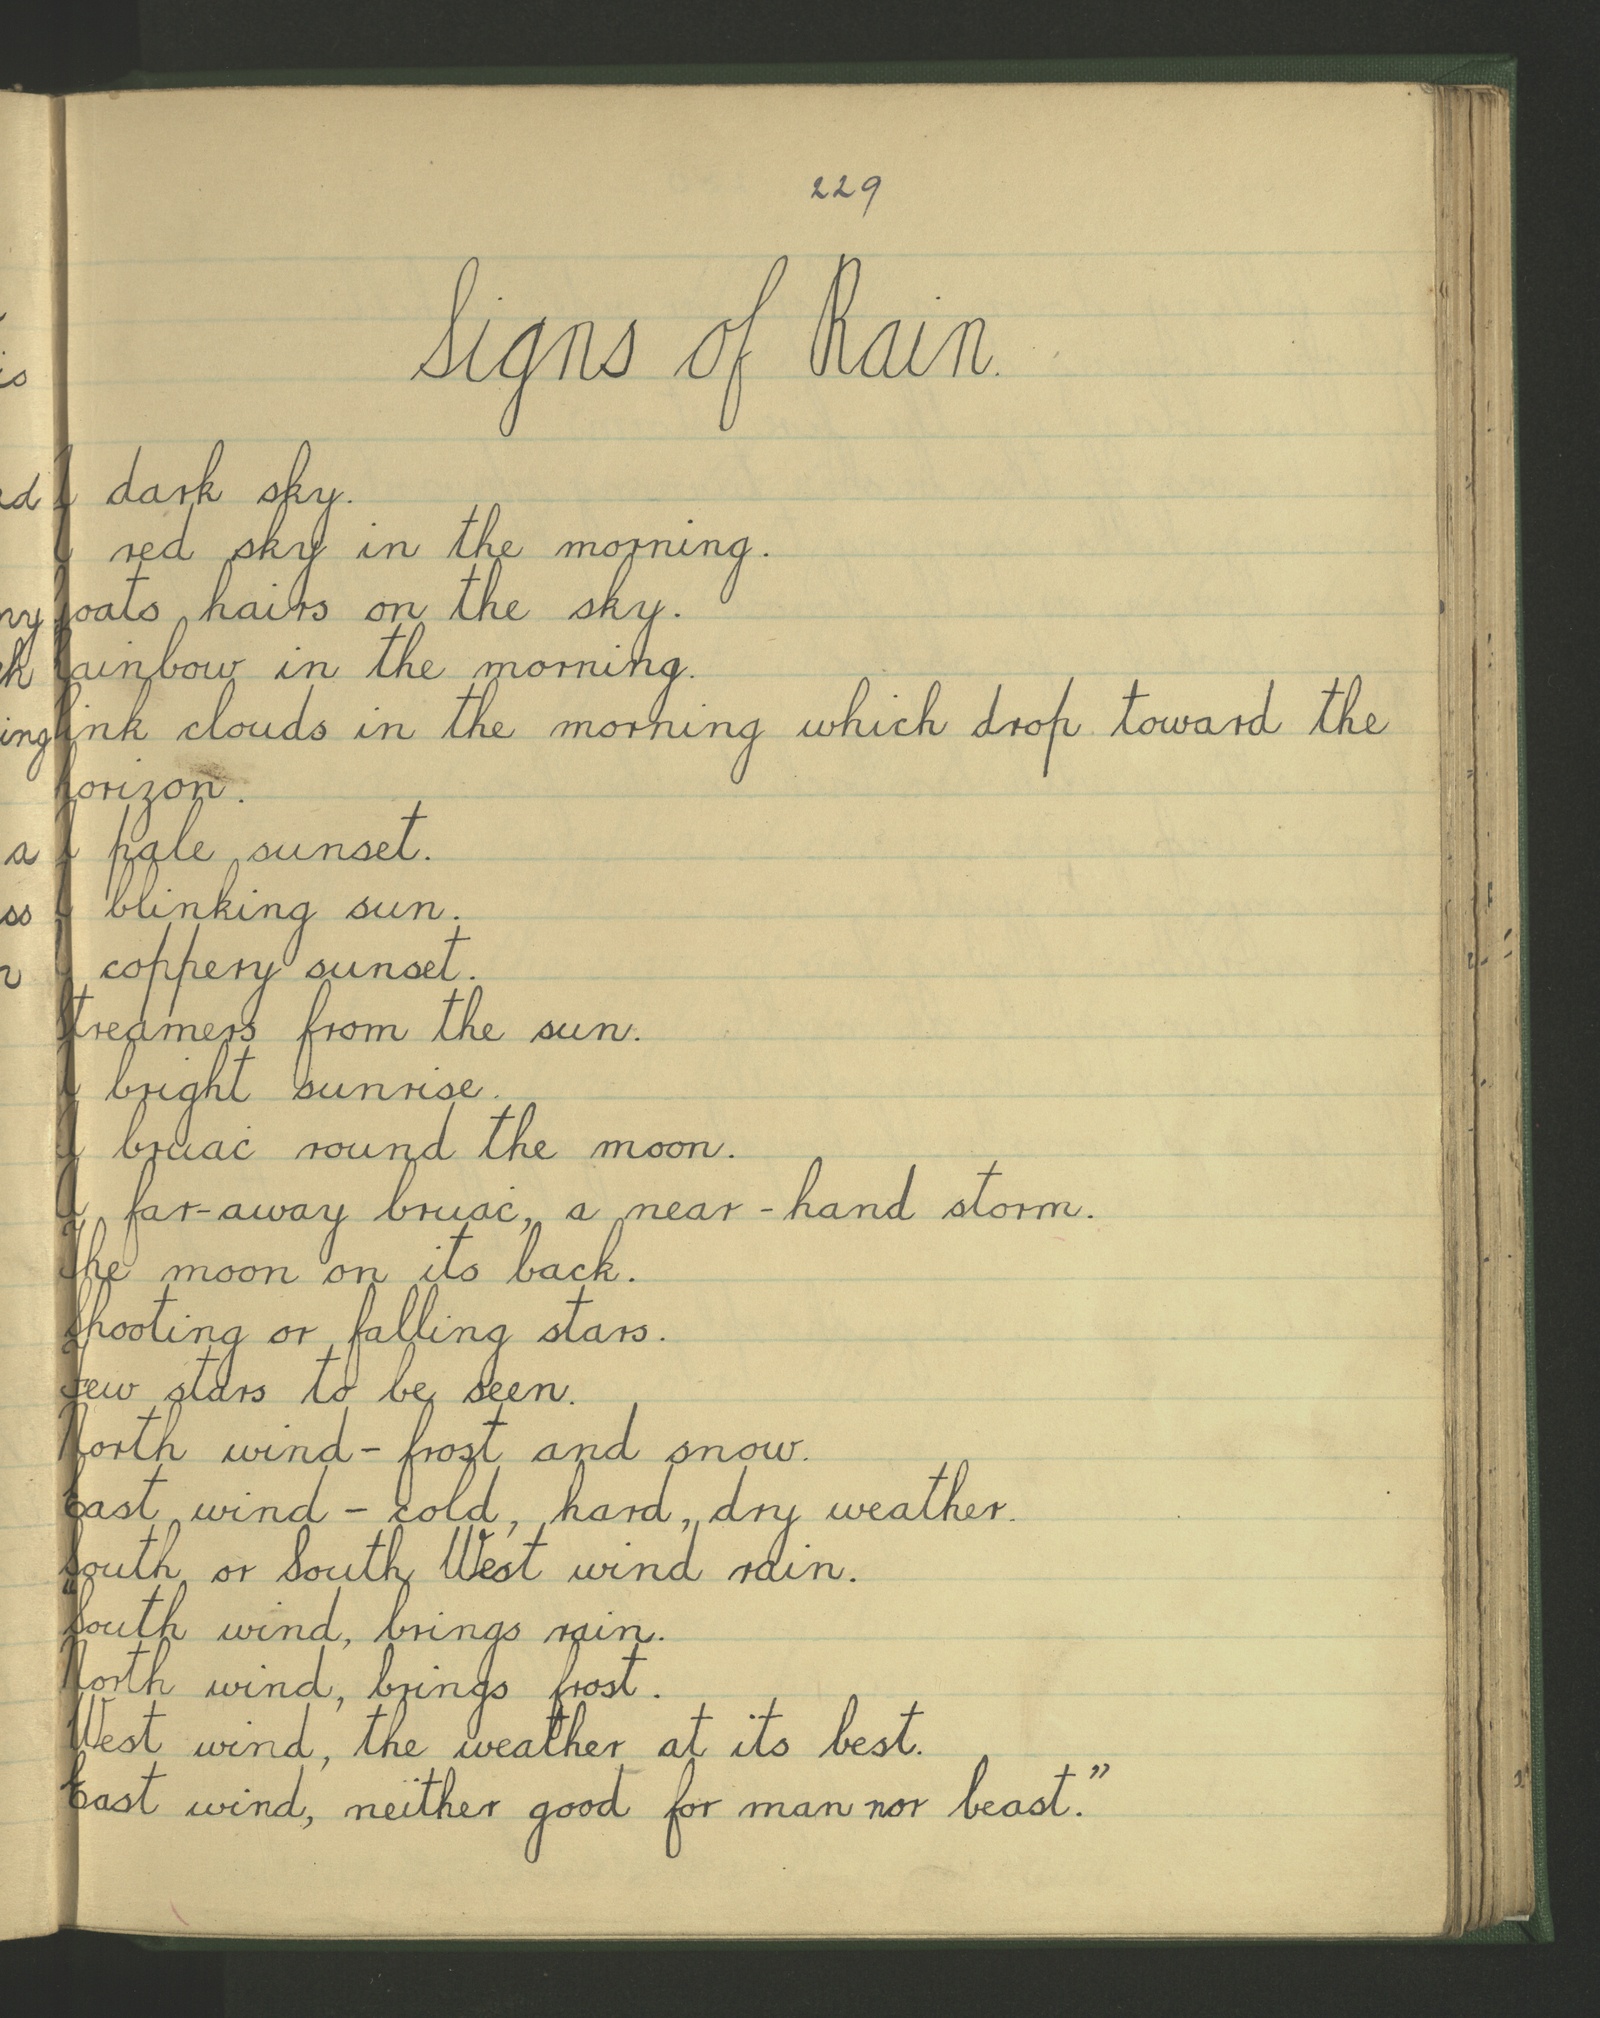 229
Signs of Rain.
A dark sky.
A red sky in the morning.
Goats hairs on the sky.
Rainbow in the morning.
Pink clouds in the morning which drop toward the
horizon.
A pale sunset.
A blinking sun.
A coppery sunset.
Streamers from the sun.
A bright sunrise.
A bruaċ round the moon.
A far-away bruaċ, a near-hand storm.
The moon on its back.
Shooting or falling stars.
Few stars to be seen.
North wind - frost and snow.
East wind - cold, hard, dry weather.
South or South West wind rain.
"South wind, brings rain.
North wind, brings frost.
West wind, the weather at its best.
East wind, neither good for man nor beast."